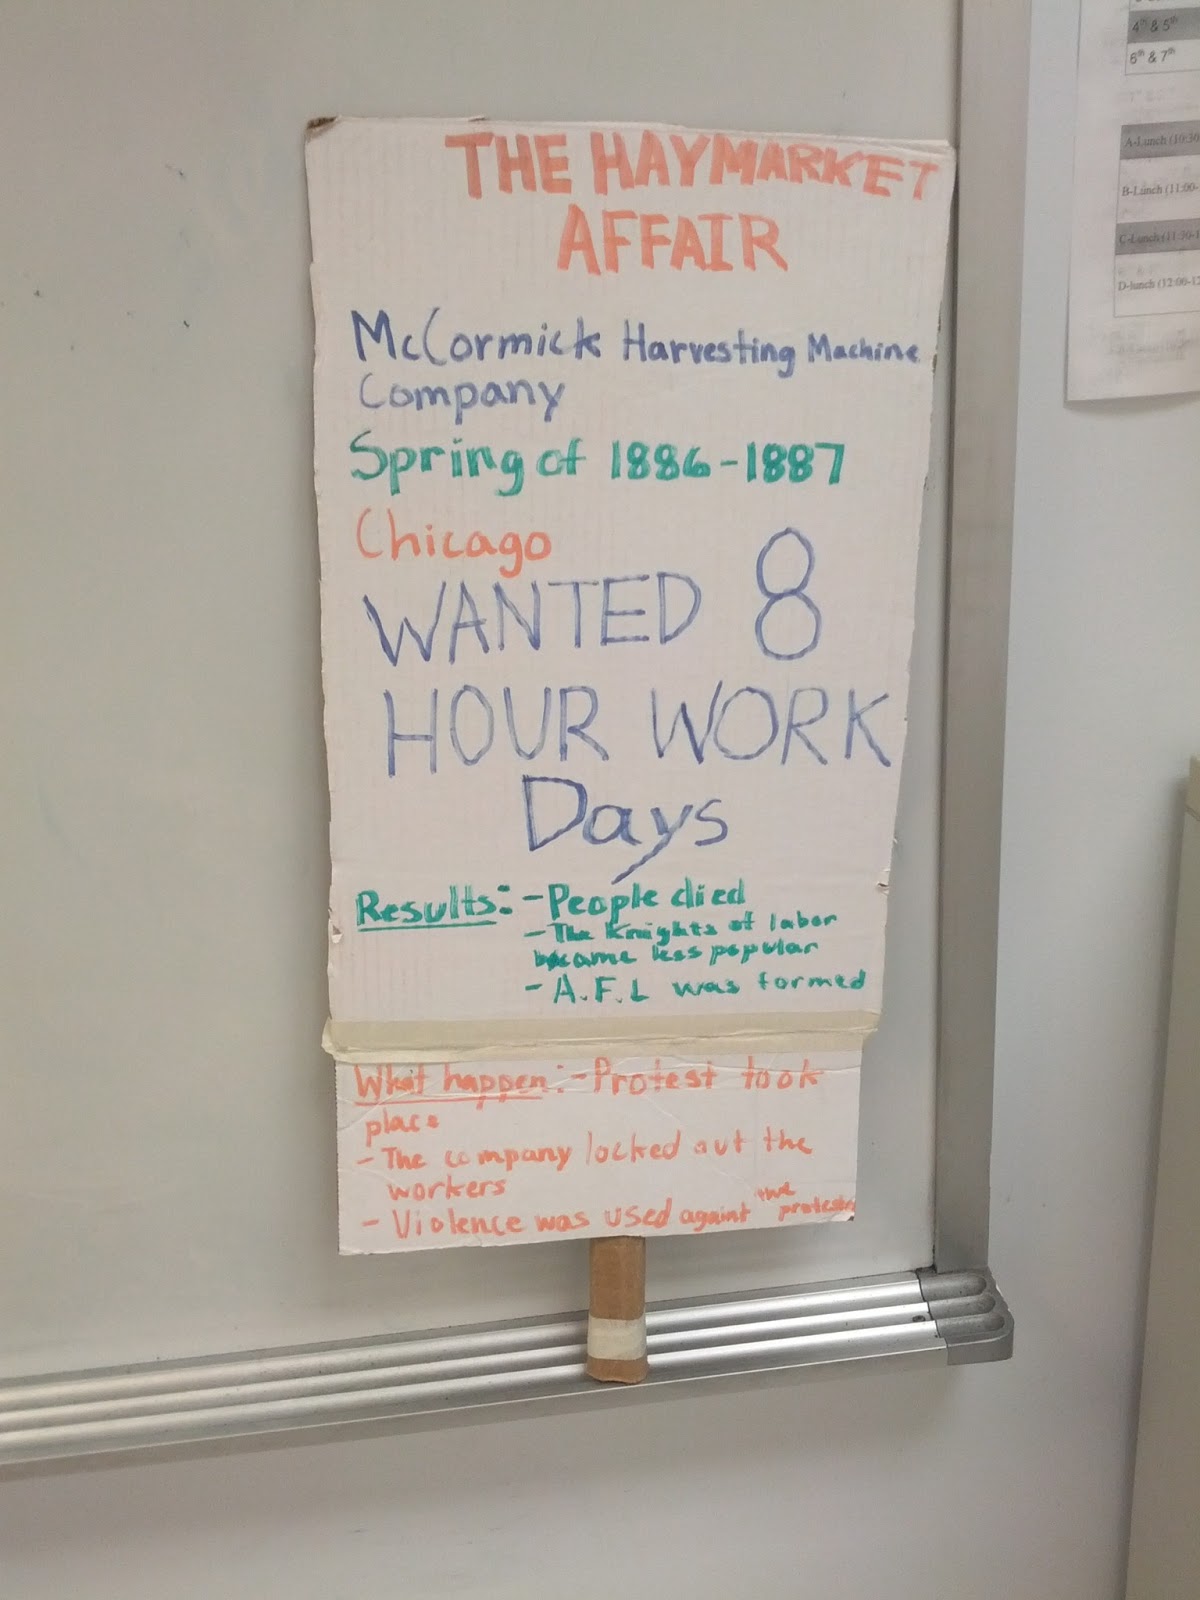 THE HAYMARKET
AFFAIR
McCormick Harvesting Machine
Company
Spring of 1886-1887
Chicago
WANTED 8
HOUR WORK
Days
Results: - People died
- The Knights of labor
became less popular
- A.F.L was formed
What happen: - Protest took
place
- The company locked out the
workers
- Violence was used againt the protestrs
4th & 5th
6th & 7th
A-Lunch (10:30
B-Lunch (11:00-
C-Lunch (11:30-1
D-lunch (12:00-12